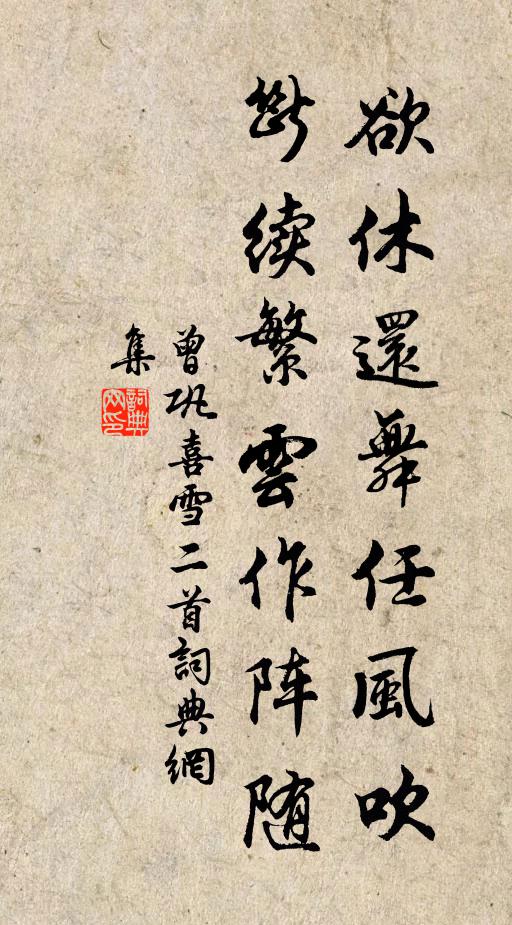 欲休還舞任風吹
斷续繁雲作阵随
曾巩喜雪二首詞典網
集
詞典
网印